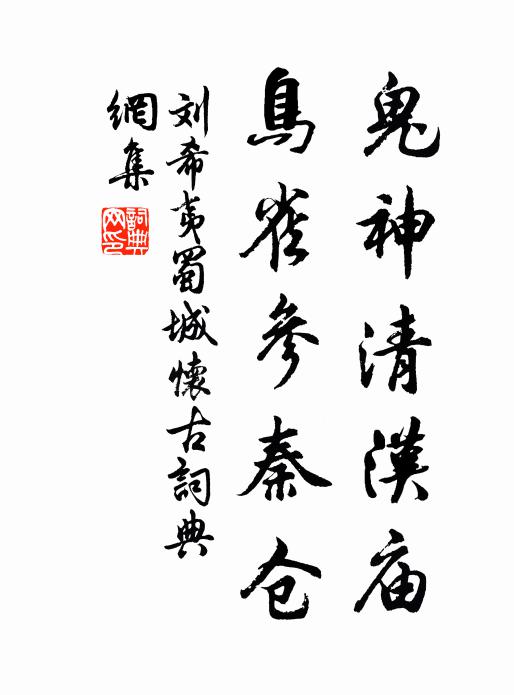 鬼神清漢庙
鳥雀參秦仓
刘希夷蜀城懷古詞典
網集
詞典
网印